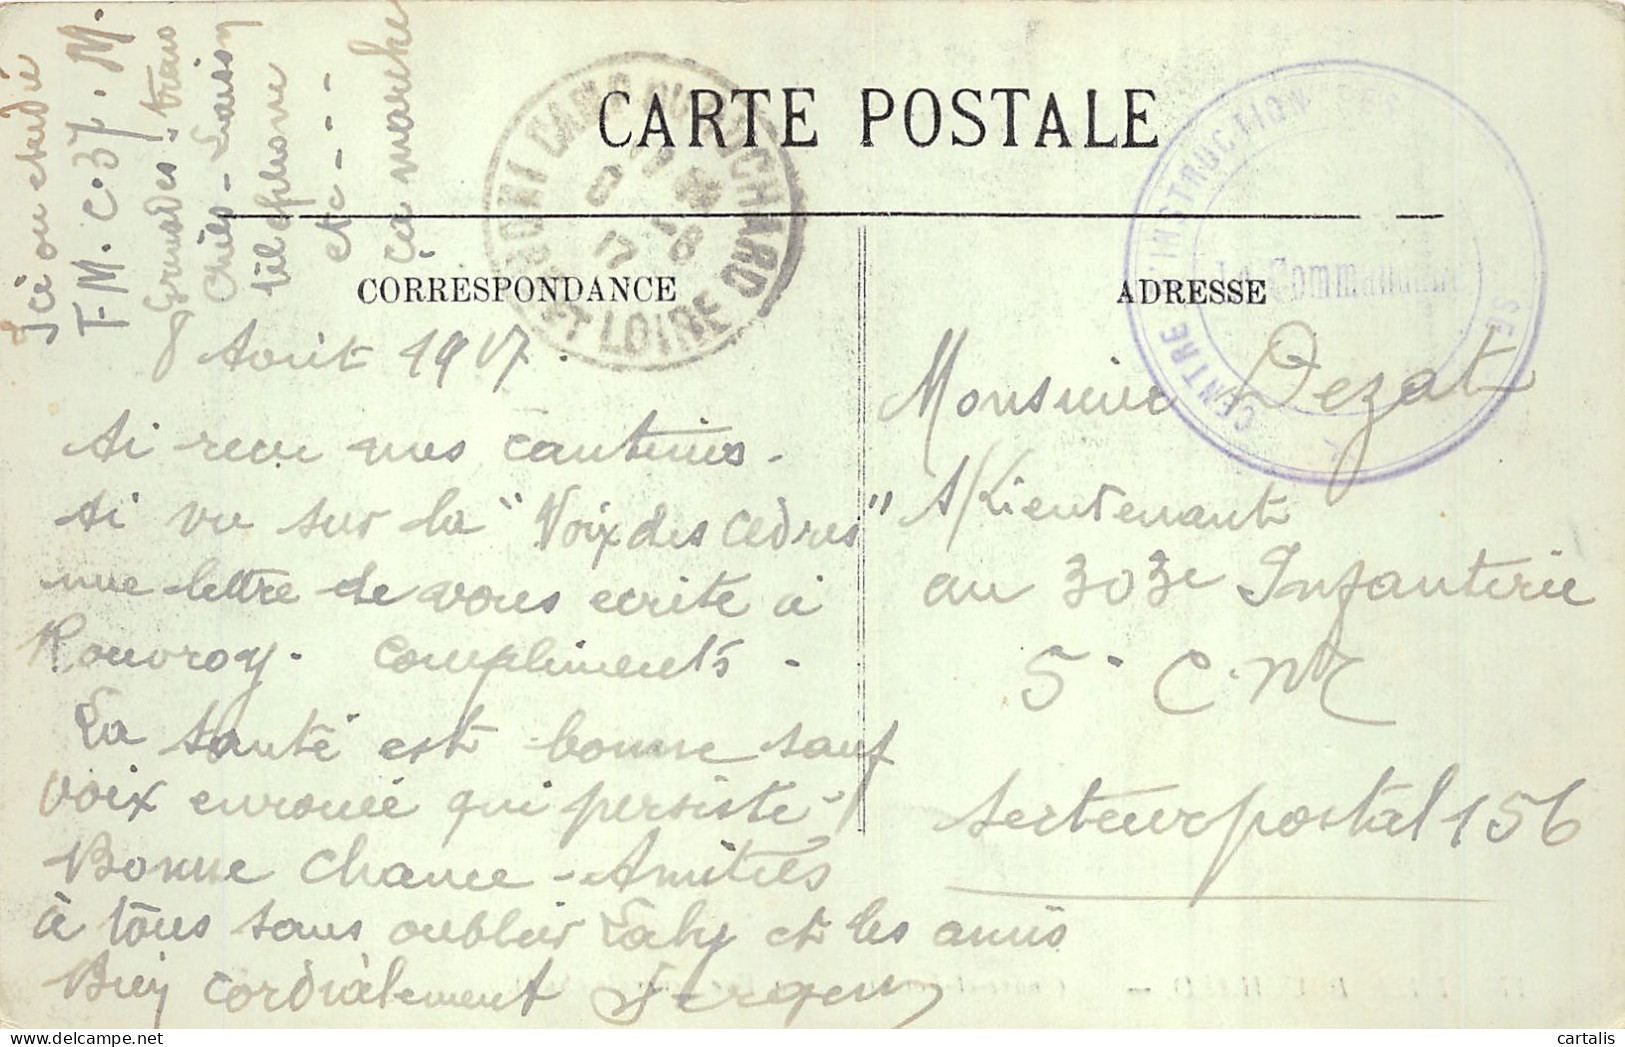 Ici on etudie
F.M. C.37. M.
Grenades - trans
Chiës - Liaison
téléphone
etc - - -
Ca marche
CARTE POSTALE
CORRESPONDANCE
ADRESSE
CENTRE D'INSTRUCTION DES
Le Commandant
CAMP DU RUCHARD
INDRE ET LOIRE
8 Août 1917.
Ai reçu mes cantines.
Ai vu sur la "Voix des Cèdres"
une lettre de vous écrite à
Rouvroy. Compliments.
La santé est bonne sauf
voix enrouée qui persiste.
Bonne chance - Amitiés
à tous sans oublier Laly et les amis
Bien cordialement
Monsieur Dezat
S/Lieutenant
au 303e Infanterie
5e C.M
Secteur postal 156
cartalis